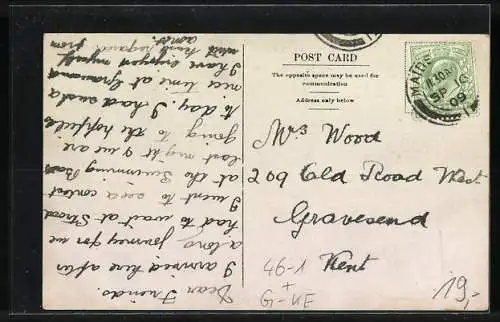 POST CARD
The opposite space may be used for
communication
Address only below
MAIDS
SP 16
09
Mrs Wood
209 Old Road West
Gravesend
Kent
46-1
+
G-NE
19,-
Dear Friends.
I arrived here after
a long journey for we
had to wait at Strood
I went to see a contest
at the Swimming Bath
last night & we are
going to the hopfields
to day. I had such a
nice time at Gravesend
I have enjoyed myself
with kind regards from